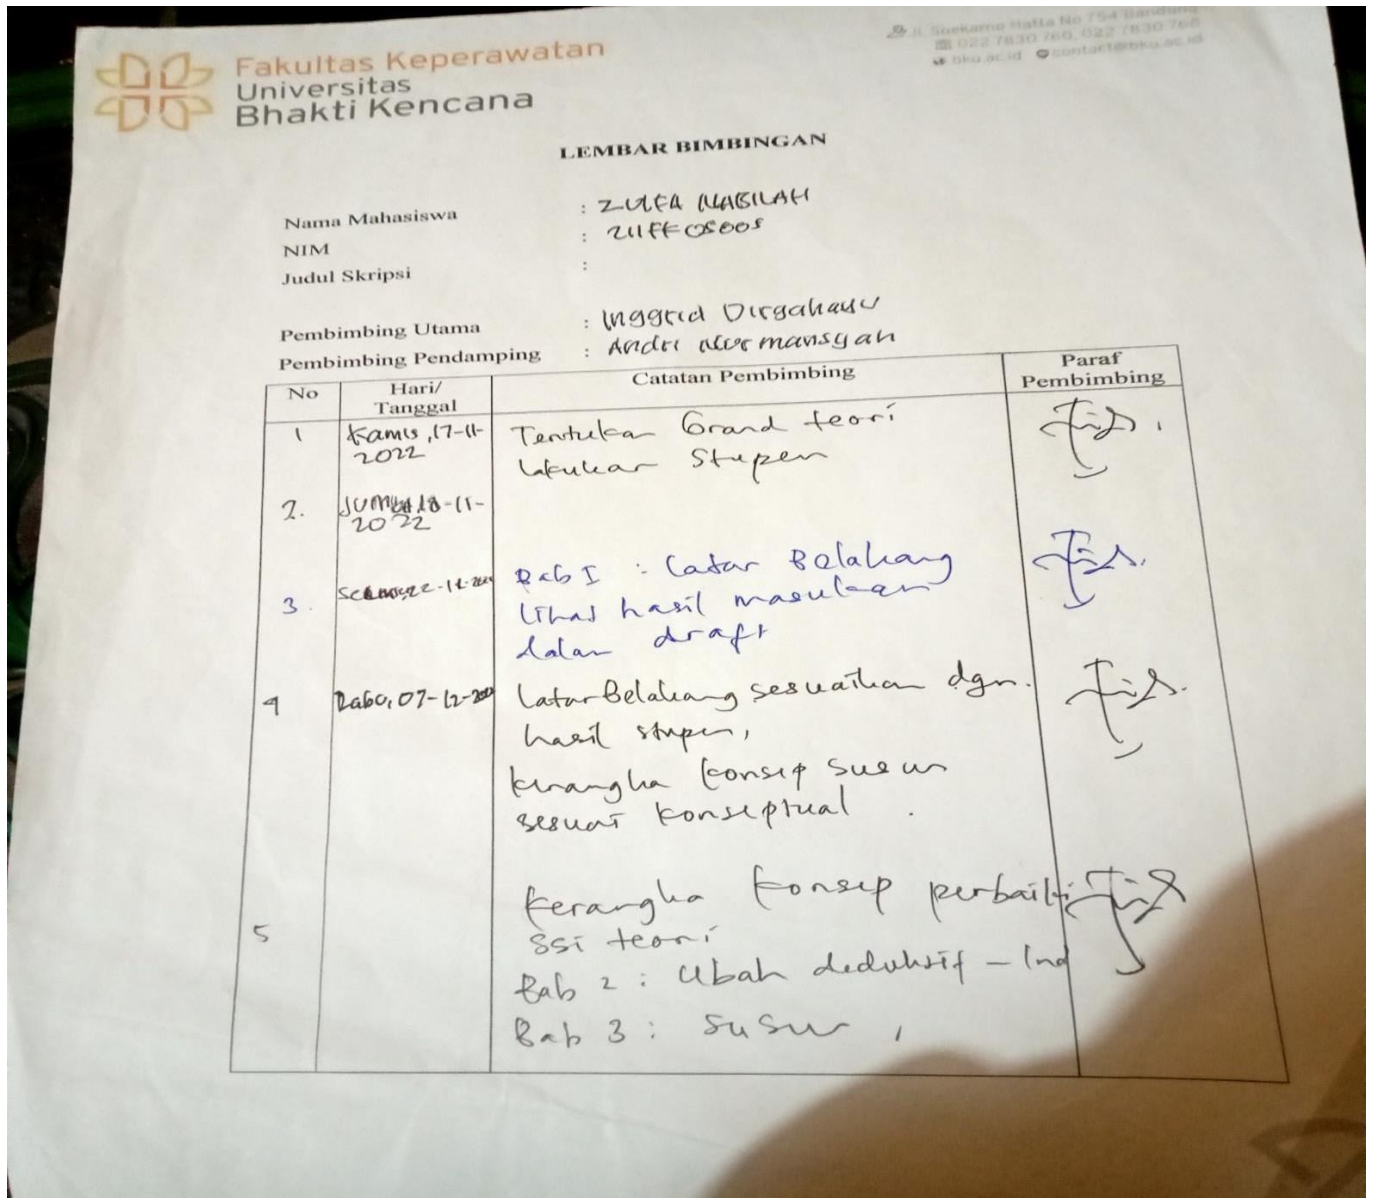 Fakultas Keperawatan
Universitas
Bhakti Kencana
Jl. Soekarno Hatta No 754 Bandung
022 7830 760, 022 7830 768
bku.ac.id contact@bku.ac.id
LEMBAR BIMBINGAN
Nama Mahasiswa : ZULFA NABILAH
NIM : 211FK05005
Judul Skripsi :
Pembimbing Utama : Inggrid Dirgahayu
Pembimbing Pendamping : Andri Nurmansyah
No Hari/ Tanggal Catatan Pembimbing Paraf Pembimbing
1 Kamis, 17-11- Tentukan Grand teori
2022 lakukan Stupen
2. Jumat, 18-11-
2022
3. 22-12- Bab I : Latar Belakang
lihat hasil masukan
dalam draft
4 Rabu, 07-12- Latar Belakang sesuaikan dgn.
hasil stupen,
kerangka konsep susun
sesuai konseptual.
5 Kerangka konsep perbaiki
ssi teori
Bab 2 : Ubah deduktif - Ind
Bab 3 : susun,